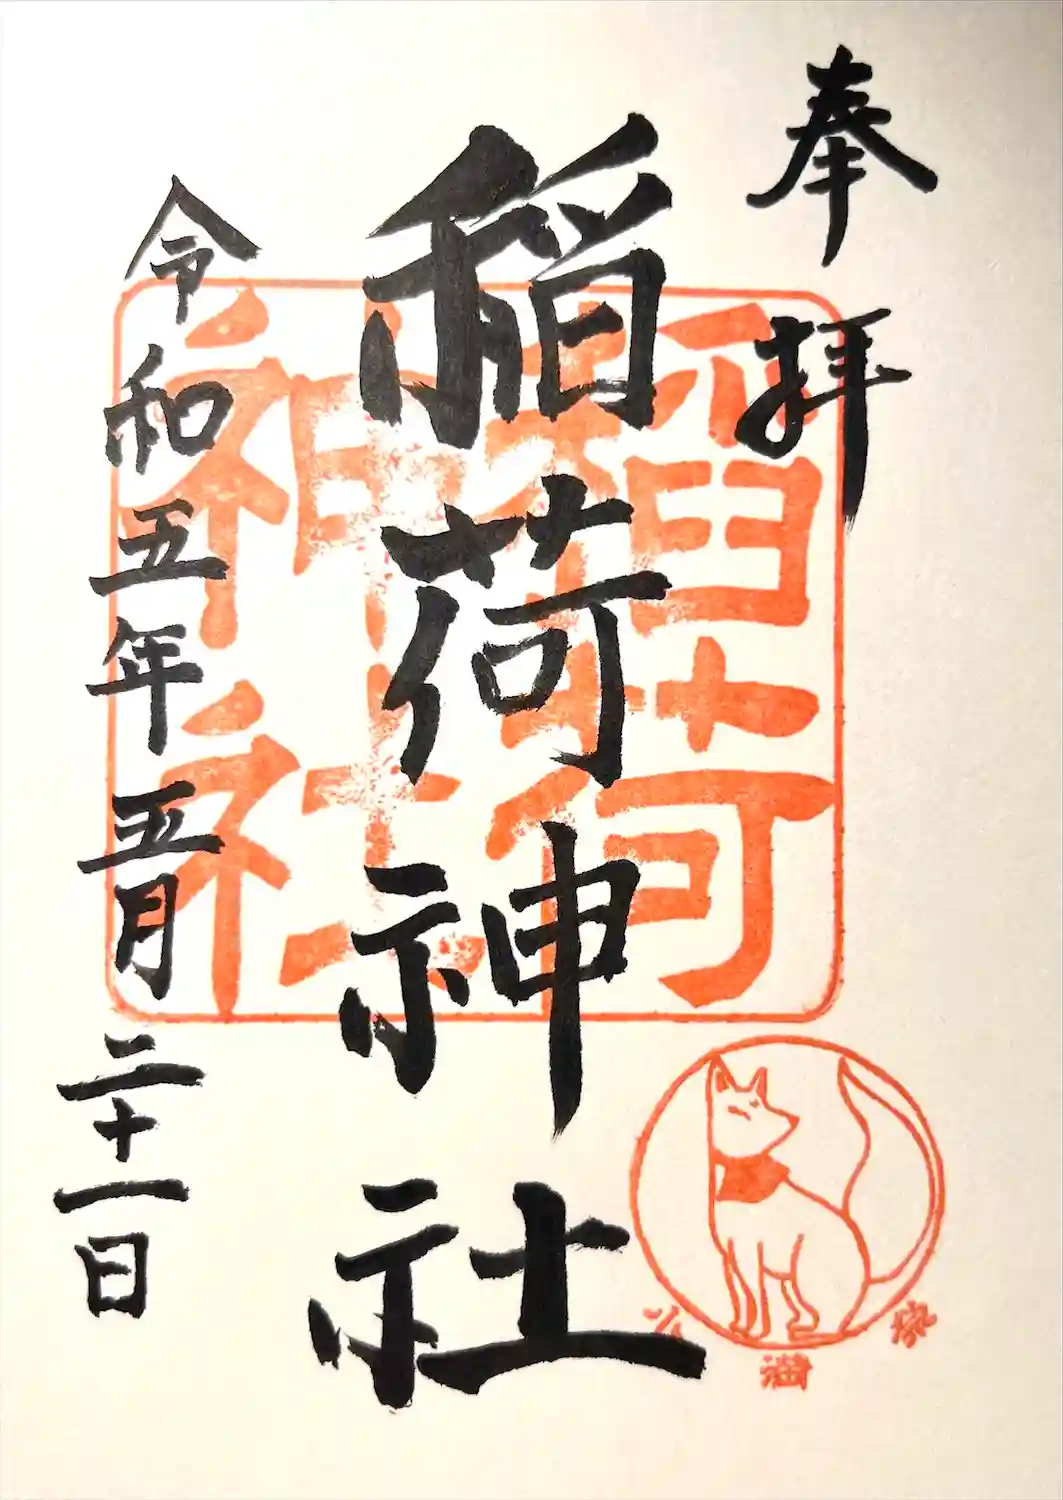 奉拝
稲荷神社
稲荷
神社
令和五年五月二十一日